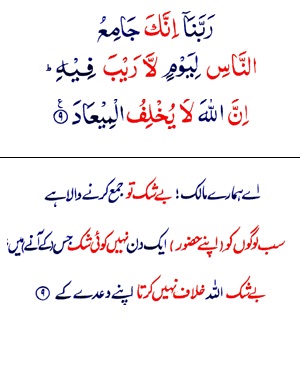 رَبَّنَاۤ اِنَّكَ جَامِعُ
النَّاسِ لِيَوْمٍ لَّا رَيْبَ فِيْهِؕ
اِنَّ اللّٰهَ لَا يُخْلِفُ الْمِيْعَادَ ﴿۹﴾
اے ہمارے مالک! بے شک تو جمع کرنے والا ہے
سب لوگوں کو (اپنے حضور) ایک دن نہیں کوئی شک جس کے آنے میں؛
بے شک اللہ خلاف نہیں کرتا اپنے وعدے کے ﴿۹﴾